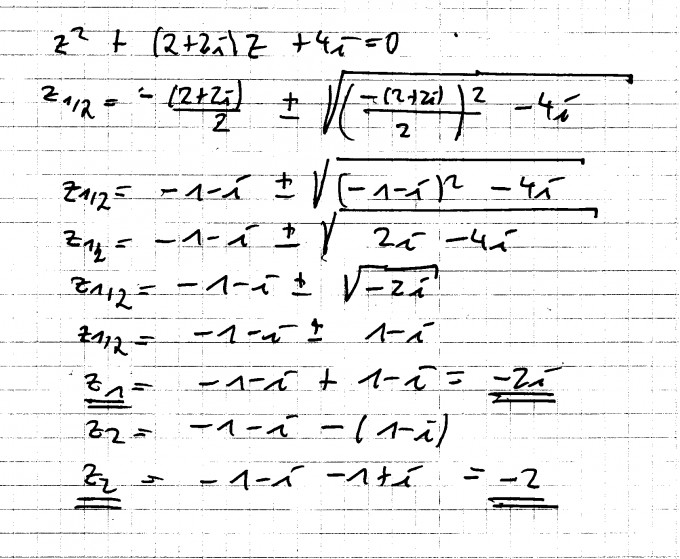 z² + (2+2i)z + 4i = 0
z₁/₂ = - (2+2i)/2 ± √((-(2+2i)/2)² - 4i)
z₁/₂ = -1-i ± √((-1-i)² - 4i)
z₁/₂ = -1-i ± √(2i - 4i)
z₁/₂ = -1-i ± √(-2i)
z₁/₂ = -1-i ± 1-i
z₁ = -1-i + 1-i = -2i
z₂ = -1-i -(1-i)
z₂ = -1-i -1+i = -2